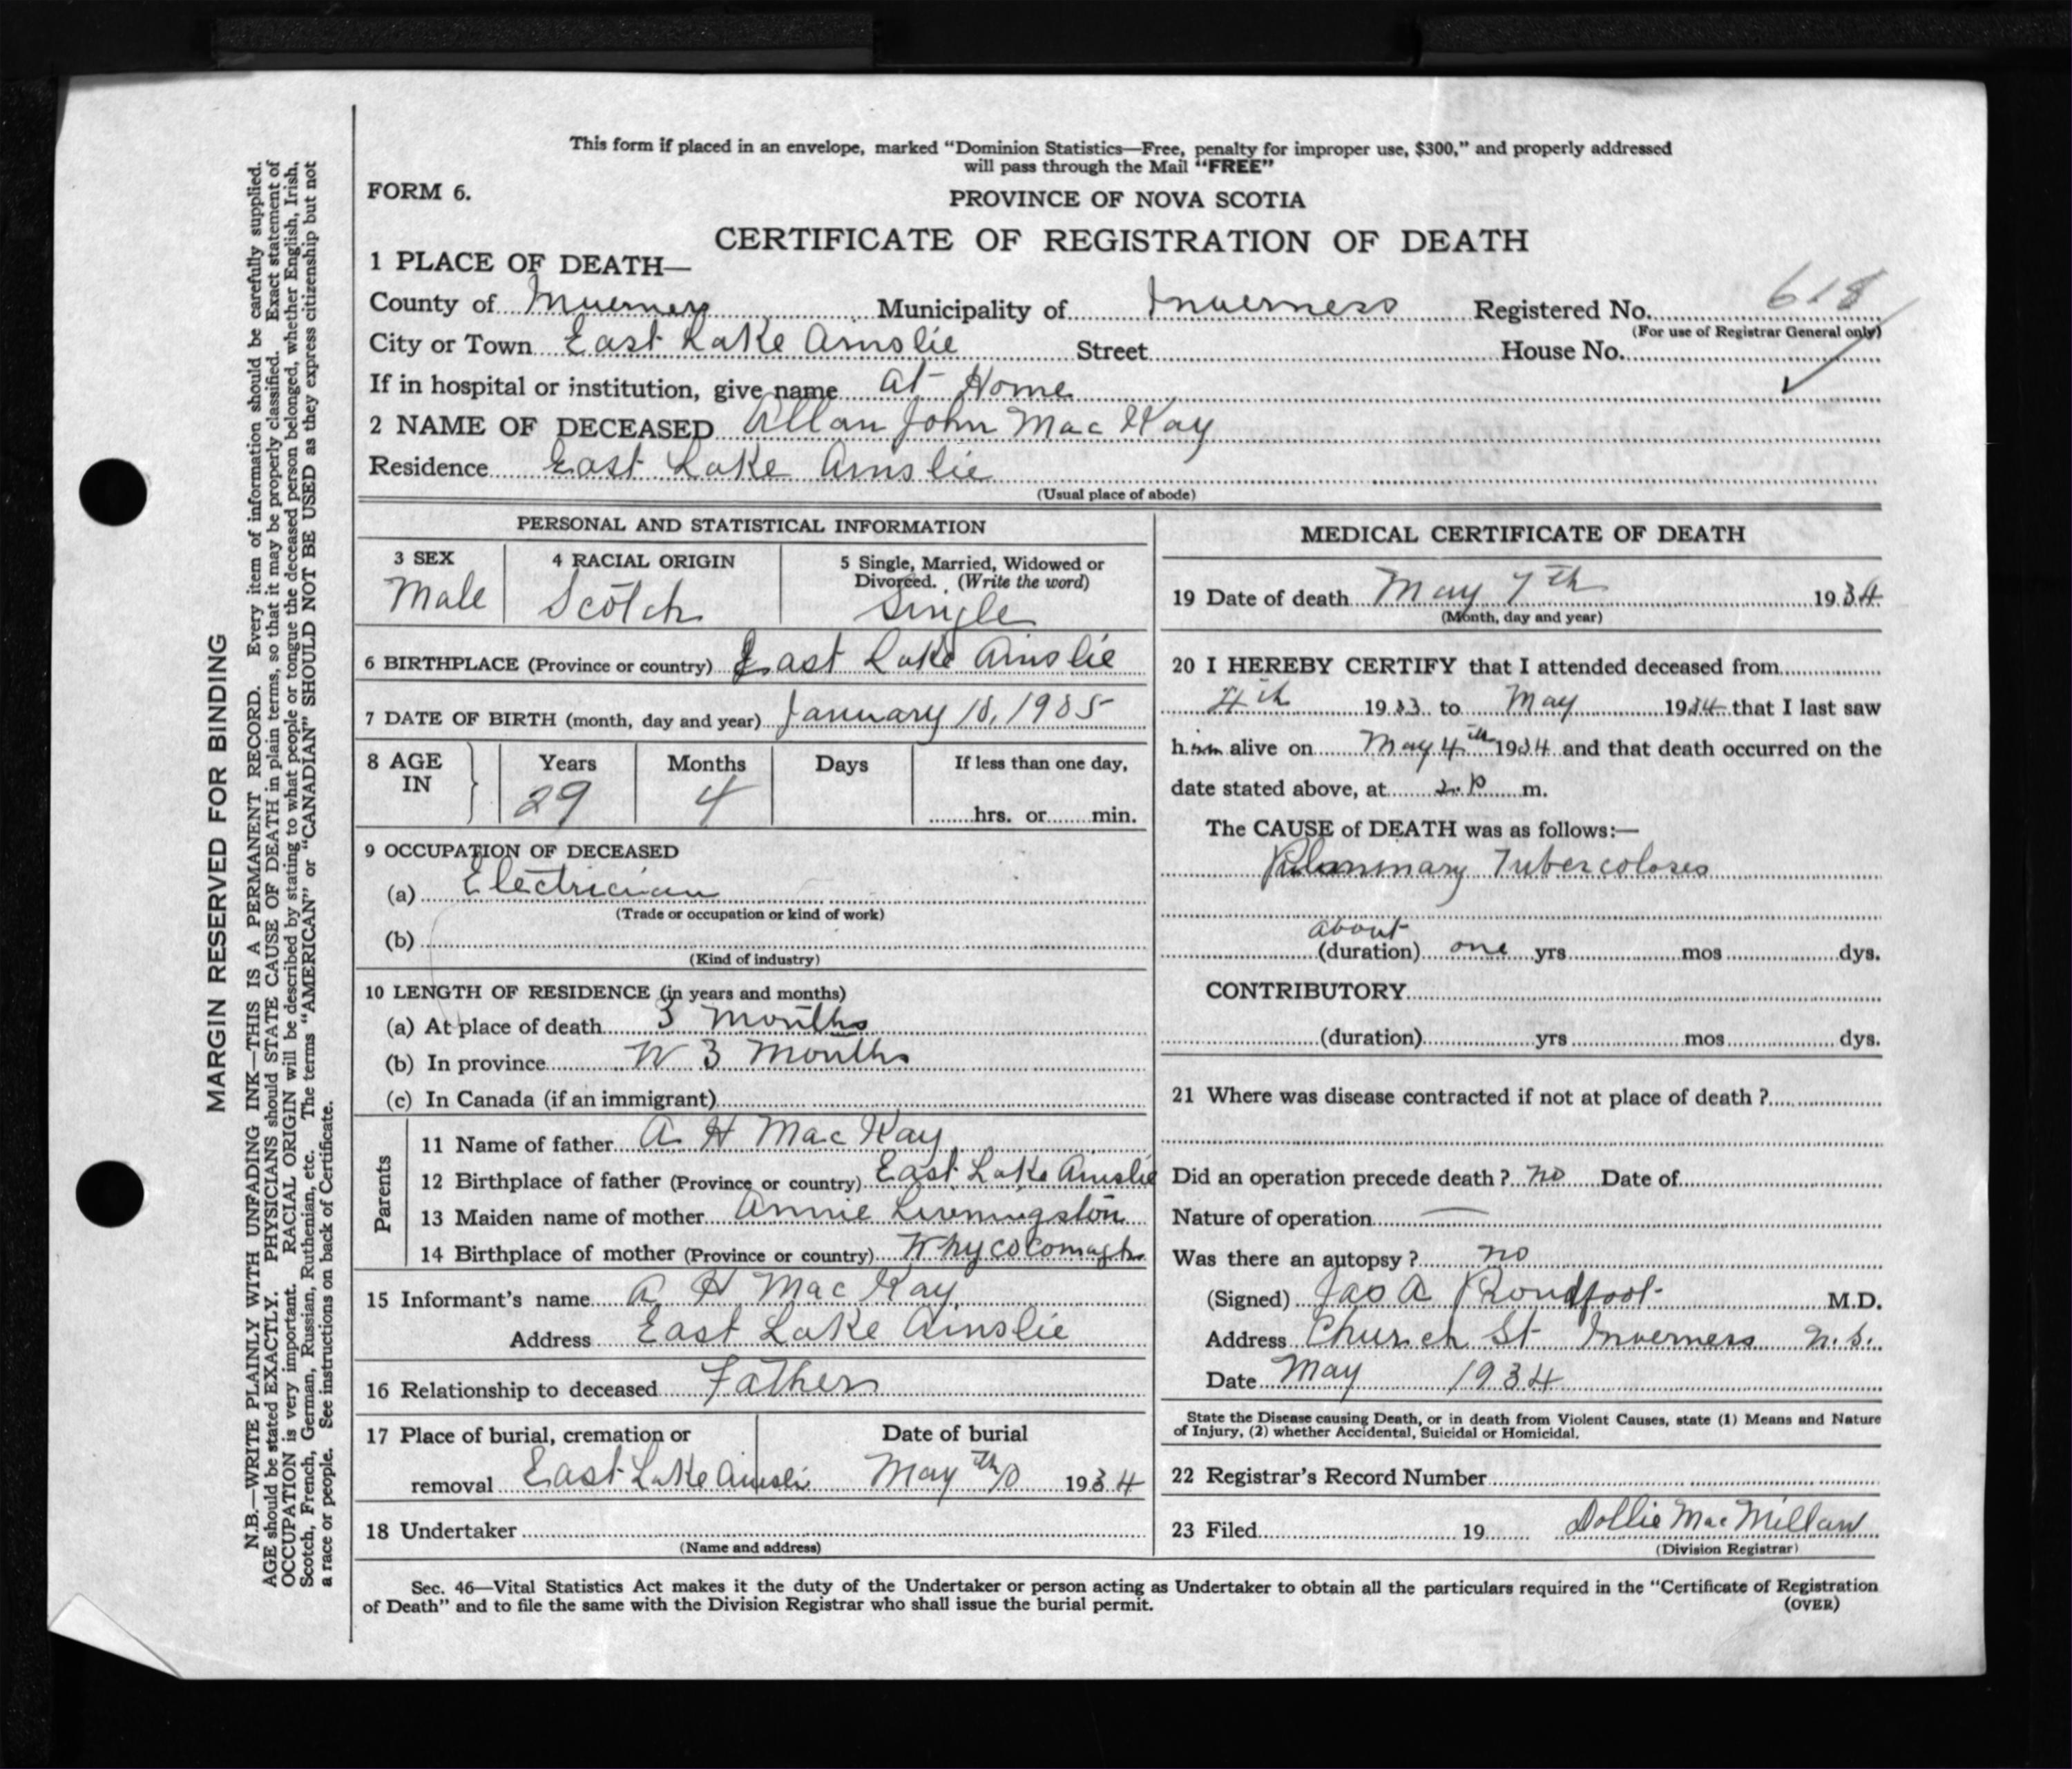 This form if placed in an envelope, marked "Dominion Statistics—Free, penalty for improper use, $300," and properly addressed
will pass through the Mail "FREE"
FORM 6.
PROVINCE OF NOVA SCOTIA
CERTIFICATE OF REGISTRATION OF DEATH
1 PLACE OF DEATH—
County of Inverness Municipality of Inverness Registered No. 618
(For use of Registrar General only)
City or Town East Lake Ainslie Street House No.
If in hospital or institution, give name at Home
2 NAME OF DECEASED Allan John Mac Kay
Residence East Lake Ainslie
(Usual place of abode)
PERSONAL AND STATISTICAL INFORMATION
3 SEX 4 RACIAL ORIGIN 5 Single, Married, Widowed or
Divorced. (Write the word)
Male Scotch Single
6 BIRTHPLACE (Province or country) East Lake Ainslie
7 DATE OF BIRTH (month, day and year) January 18, 1905
8 AGE IN Years Months Days If less than one day,
29 4 hrs. or min.
9 OCCUPATION OF DECEASED
(a) Electrician
(Trade or occupation or kind of work)
(b)
(Kind of industry)
10 LENGTH OF RESIDENCE (in years and months)
(a) At place of death 3 Months
(b) In province 3 Months
(c) In Canada (if an immigrant)
Parents
11 Name of father A. H Mac Kay
12 Birthplace of father (Province or country) East Lake Ainslie
13 Maiden name of mother Annie Livingston
14 Birthplace of mother (Province or country) Whycocomagh
15 Informant's name A H Mac Kay
Address East Lake Ainslie
16 Relationship to deceased Father
17 Place of burial, cremation or Date of burial
removal East Lake Ainsli May 10th 1934
18 Undertaker
(Name and address)
MEDICAL CERTIFICATE OF DEATH
19 Date of death May 7th 1934
(Month, day and year)
20 I HEREBY CERTIFY that I attended deceased from
4th 1933 to May 1934 that I last saw
him alive on May 4th 1934 and that death occurred on the
date stated above, at 2. P m.
The CAUSE of DEATH was as follows:—
Pulmmary Tubercoloses
about
(duration) one yrs mos dys.
CONTRIBUTORY
(duration) yrs mos dys.
21 Where was disease contracted if not at place of death ?
Did an operation precede death ? no Date of
Nature of operation —
Was there an autopsy ? no
(Signed) Jas A Proudfoot M.D.
Address Church St Inverness N.S.
Date May 1934
State the Disease causing Death, or in death from Violent Causes, state (1) Means and Nature
of Injury, (2) whether Accidental, Suicidal or Homicidal.
22 Registrar's Record Number
23 Filed 19 Dollie Mac Millan
(Division Registrar)
Sec. 46—Vital Statistics Act makes it the duty of the Undertaker or person acting as Undertaker to obtain all the particulars required in the "Certificate of Registration
of Death" and to file the same with the Division Registrar who shall issue the burial permit.
(OVER)
MARGIN RESERVED FOR BINDING
N.B.—WRITE PLAINLY WITH UNFADING INK—THIS IS A PERMANENT RECORD. Every item of information should be carefully supplied.
AGE should be stated EXACTLY. PHYSICIANS should STATE CAUSE OF DEATH in plain terms, so that it may be properly classified. Exact statement of
OCCUPATION is very important. RACIAL ORIGIN will be described by stating to what people or tongue the deceased person belonged, whether English, Irish,
Scotch, French, German, Russian, Ruthenian, etc. The terms "AMERICAN" or "CANADIAN" SHOULD NOT BE USED as they express citizenship but not
a race or people. See instructions on back of Certificate.